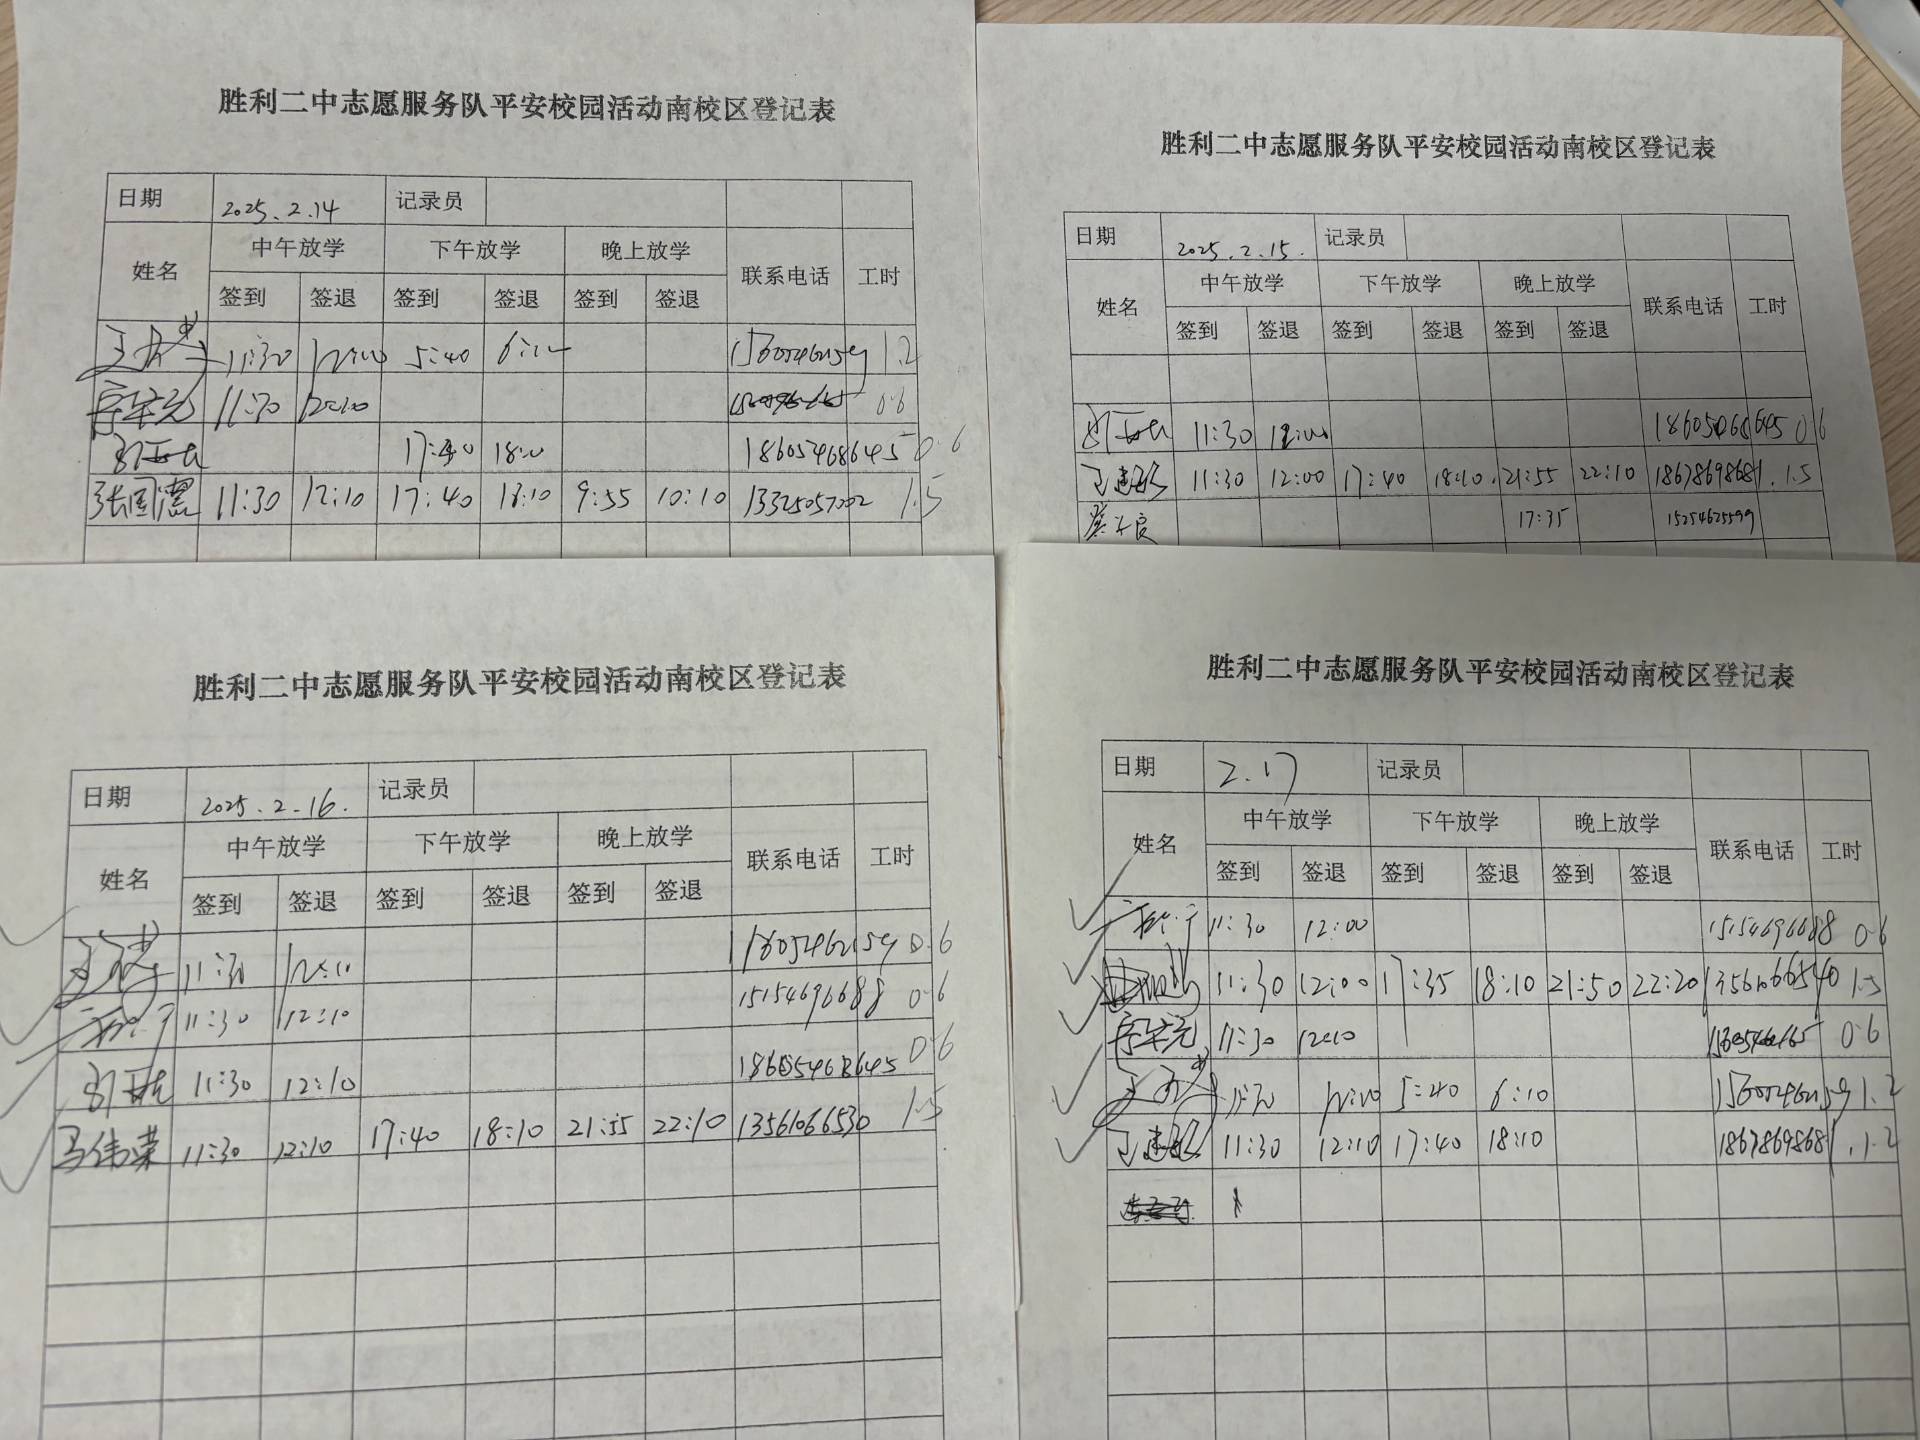 胜利二中志愿服务队平安校园活动南校区登记表
日期 2025.2.14 记录员
姓名 中午放学 下午放学 晚上放学 联系电话 工时
签到 签退 签到 签退 签到 签退
11:30 5:40 1.2
11:30 12:10 0.6
17:40 18605468645 0.6
张国潔 11:30 12:10 17:40 18:10 9:55 10:10 13325057002 1.5
胜利二中志愿服务队平安校园活动南校区登记表
日期 2025.2.15. 记录员
姓名 中午放学 下午放学 晚上放学 联系电话 工时
签到 签退 签到 签退 签到 签退
11:30 12:00 18605468645 0.6
11:30 12:00 17:40 18:10 21:55 22:10 18678698681 1.5
17:35 15254625599
胜利二中志愿服务队平安校园活动南校区登记表
日期 2025.2.16. 记录员
姓名 中午放学 下午放学 晚上放学 联系电话 工时
签到 签退 签到 签退 签到 签退
11:30 12:10 0.6
11:30 12:10 15154696688 0.6
11:30 12:10 18605468645 0.6
马伟荣 11:30 12:10 17:40 18:10 21:55 22:10 13561066530 1.5
胜利二中志愿服务队平安校园活动南校区登记表
日期 2.17 记录员
姓名 中午放学 下午放学 晚上放学 联系电话 工时
签到 签退 签到 签退 签到 签退
11:30 12:00 15154696688 0.6
11:30 12:00 17:35 18:10 21:50 22:20 13561066540 1.5
11:30 12:10 0.6
5:40 6:10 1.2
11:30 12:10 17:40 18:10 18678698681 1.2